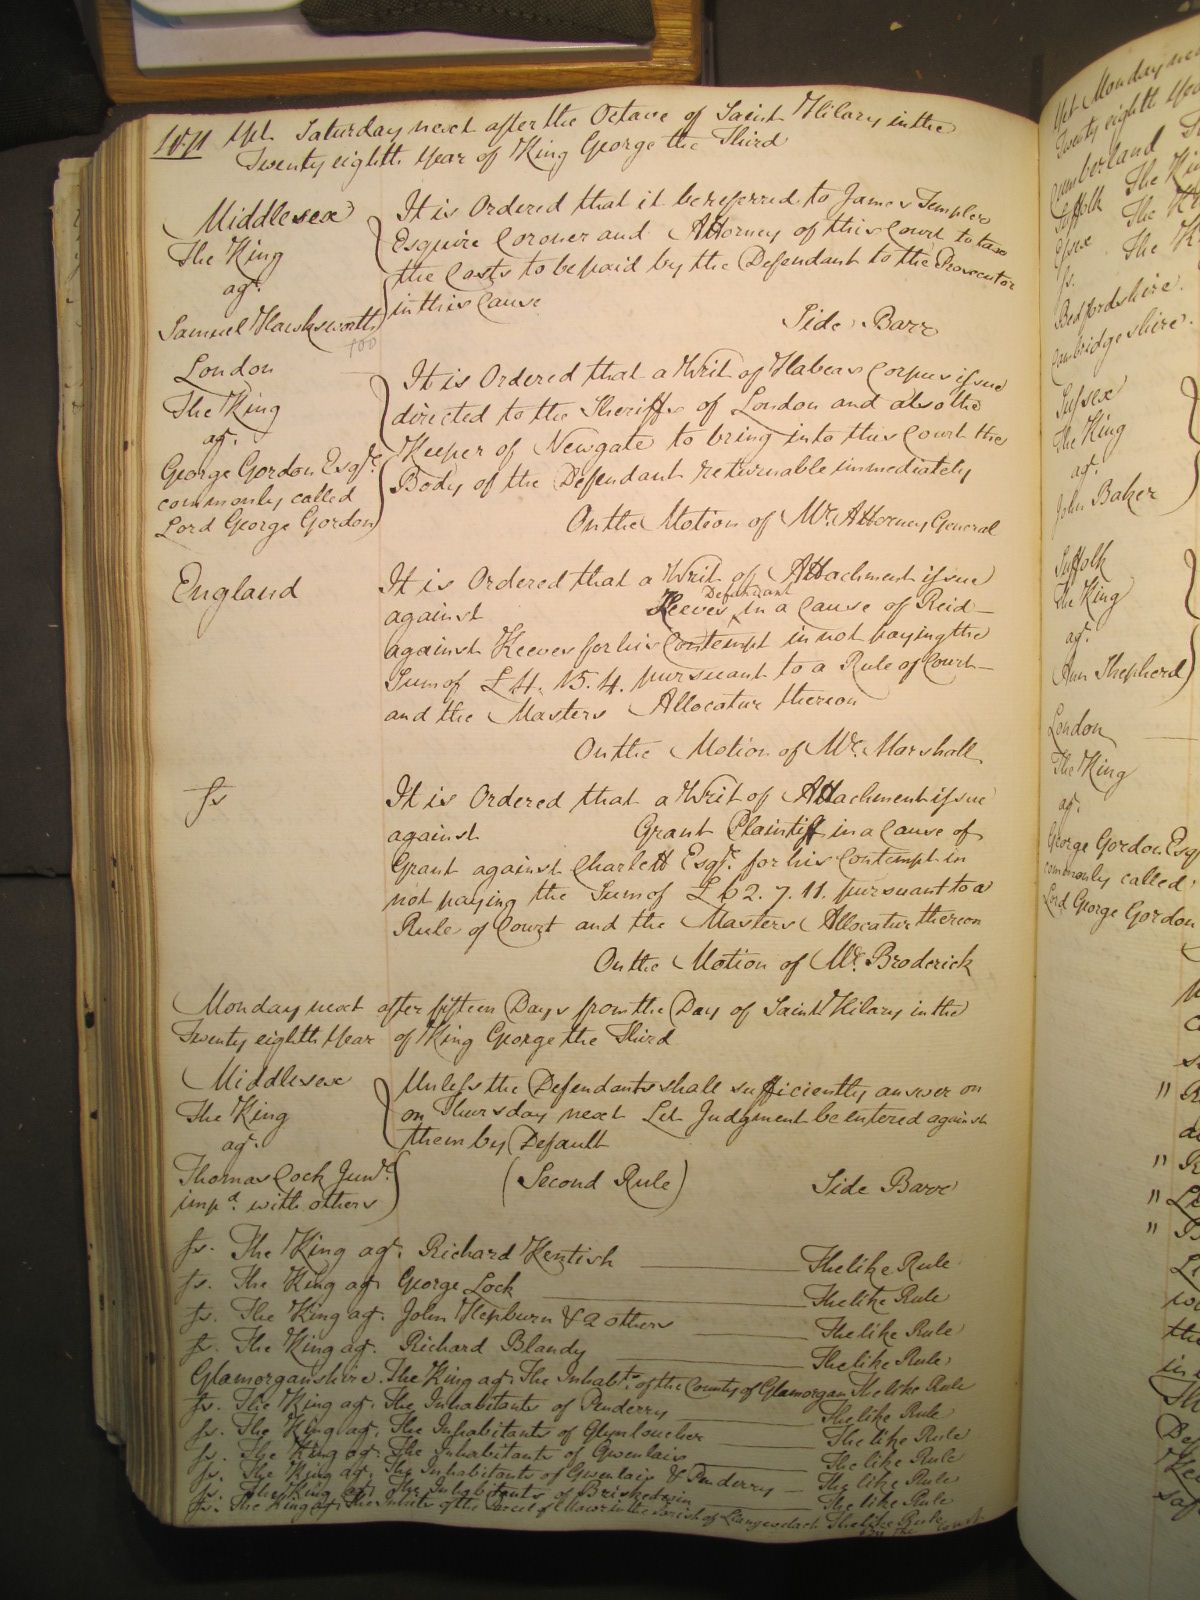 Yet Saturday next after the Octave of Saint Hilary in the
Twenty eighth Year of King George the Third
Middlesex
The King
agt.
Samuel Hawksworth
It is Ordered that it be referred to James Templer
Esquire Coroner and Attorney of this Court to tax
the Costs to be paid by the Defendant to the Prosecutor
in this Cause
Side Barr
London
The King
agt.
George Gordon Esqre.
commonly called
Lord George Gordon
It is Ordered that a Writ of Habeas Corpus issue
directed to the Sheriffs of London and also the
Keeper of Newgate to bring into this Court the
Body of the Defendant returnable immediately
On the Motion of Mr. Attorney General
England
It is Ordered that a Writ of Attachment issue
against Keeves Defendant in a Cause of Reid
against Keeves for his Contempt in not paying the
Sum of £4. 15. 4. pursuant to a Rule of Court
and the Masters Allocatur thereon
On the Motion of Mr. Marshall
fs
It is Ordered that a Writ of Attachment issue
against Grant Plaintiff in a Cause of
Grant against Charlett Esqr. for his Contempt in
not paying the Sum of £62. 7. 11. pursuant to a
Rule of Court and the Masters Allocatur thereon
On the Motion of Mr. Broderick
Monday next after fifteen Days from the Day of Saint Hilary in the
Twenty eighth Year of King George the Third
Middlesex
The King
agt.
Thomas Cock Junr.
impd. with others
Unless the Defendants shall sufficiently answer on
on Thursday next Let Judgment be entered against
them by Default
(Second Rule) Side Barr
fs. The King agt. Richard Kentish The like Rule
fs. The King agt George Lock The like Rule
fs. The King agt. John Hepburn & 2 others The like Rule
fs. The King agt. Richard Blandy The like Rule
Glamorganshire. The King agt. The Inhabts. of the County of Glamorgan The like Rule
fs. The King agt. The Inhabitants of Penderry The like Rule
fs. The King agt. The Inhabitants of Glynloucher The like Rule
fs. The King agt. The Inhabitants of Gwenlais The like Rule
fs. The King agt. The Inhabitants of Gwenlais & Penderry The like Rule
fs. The King agt. The Inhabitants of The like Rule
fs. The King agt. The Inhabts of the Parcel of in the Parish of The like Rule
By the Court
Yet Monday
Twenty eighth Year
Cumberland
Suffolk The King
Essex The K
fs. The K
Bedfordshire.
Cambridgeshire.
Sussex
The King
agt.
John Baker
Suffolk
The King
agt.
Ann Shepherd
London
The King
agt.
George Gordon Esq
commonly called
Lord George Gordon